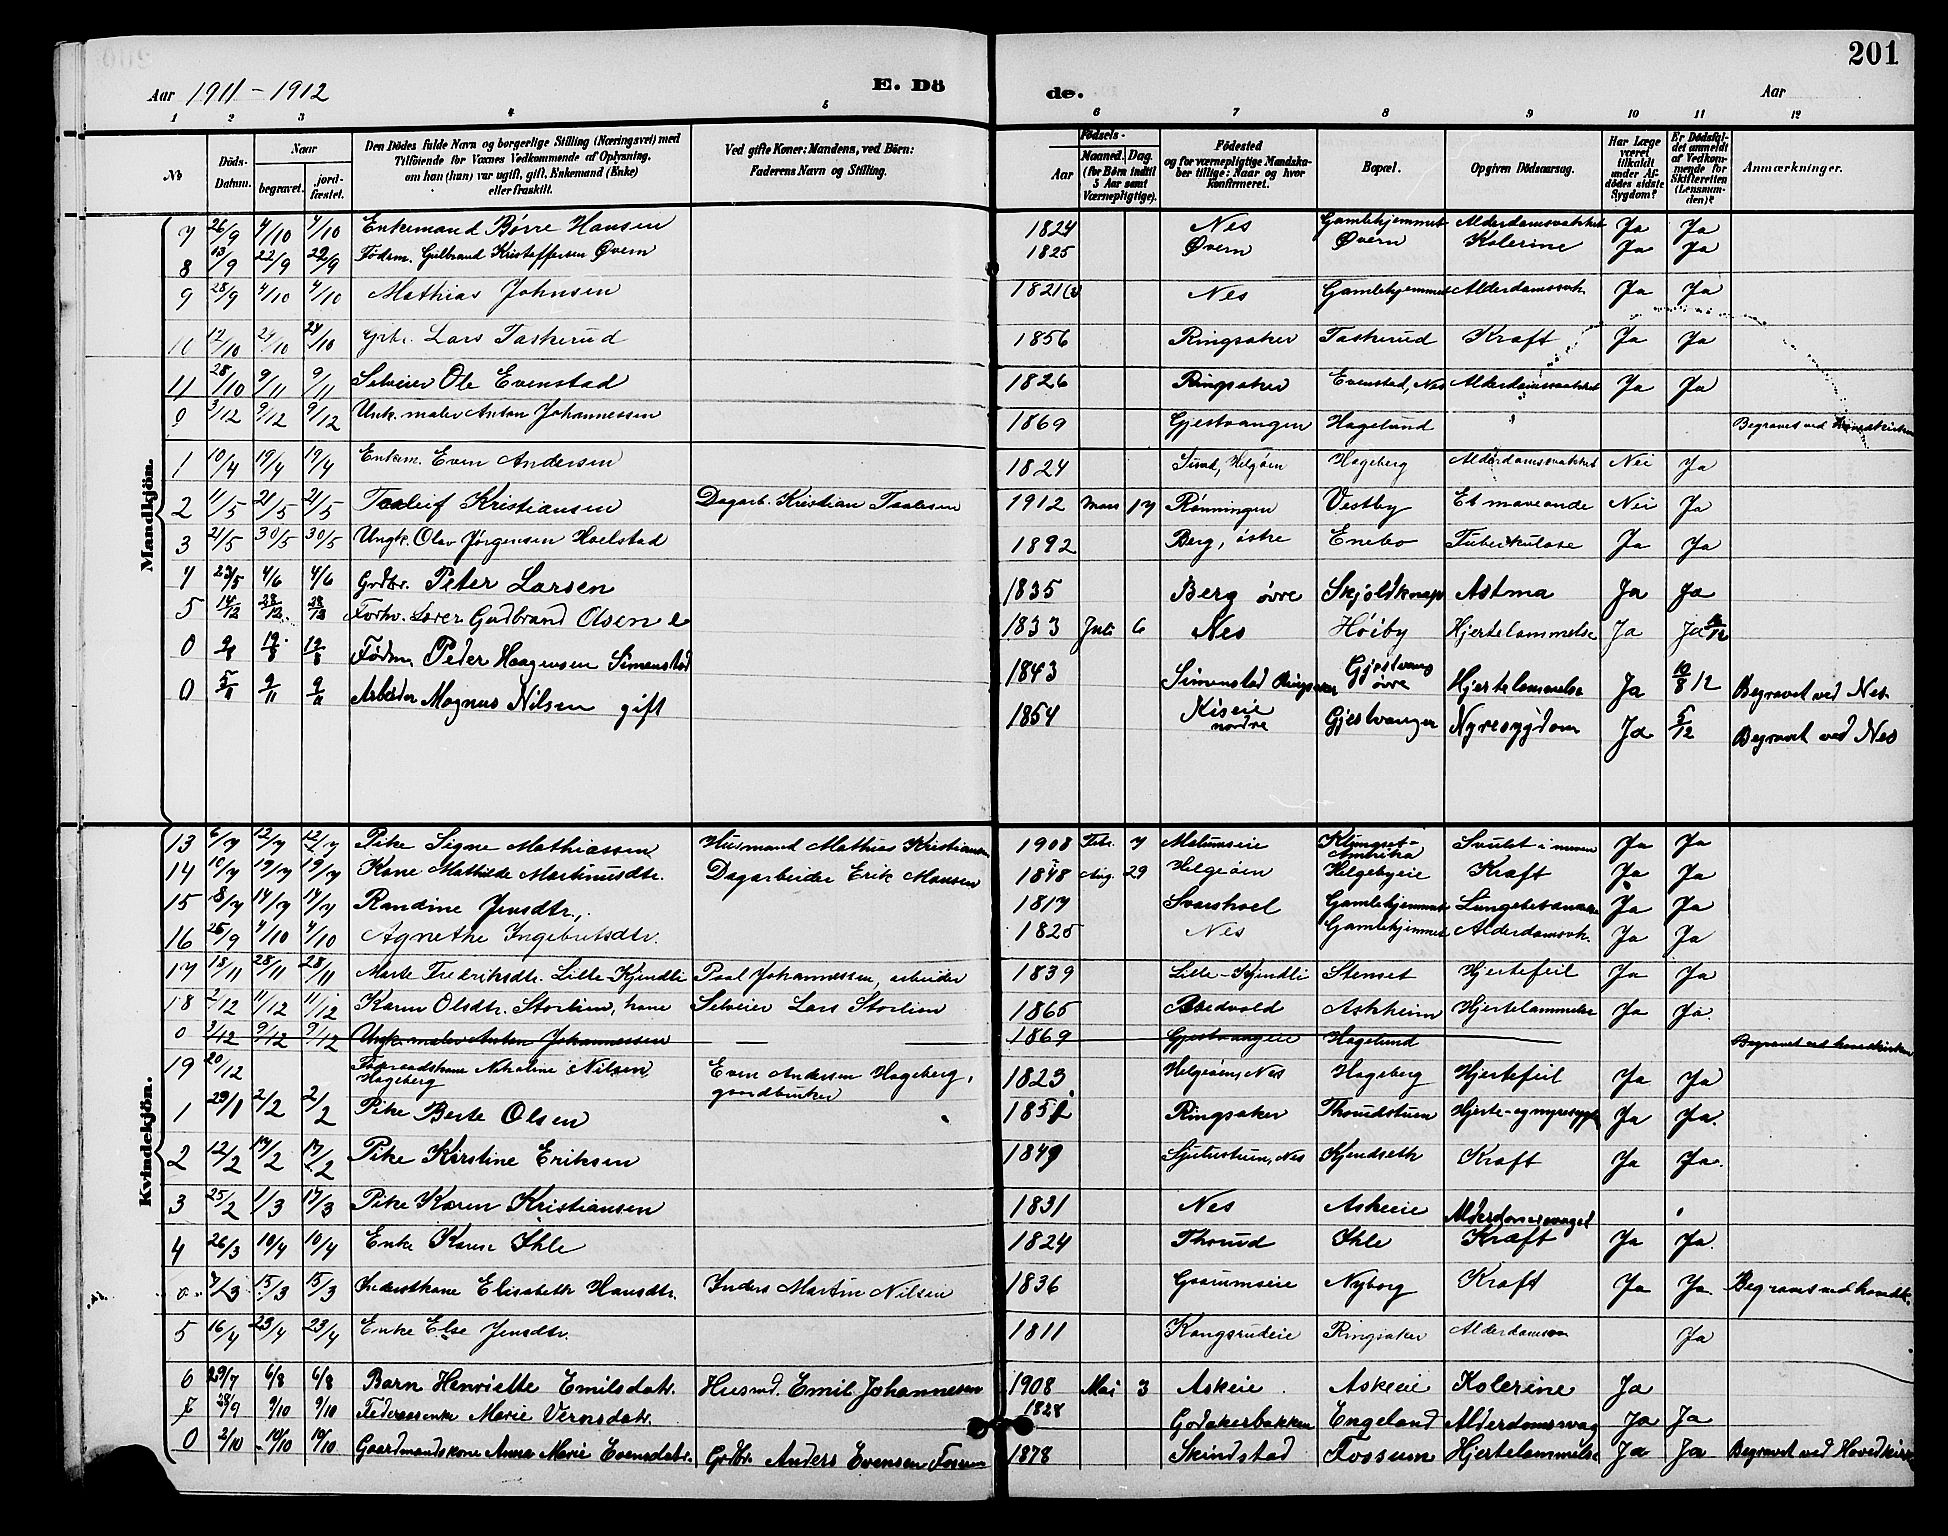 201
Aar 1911 - 1912 E. Dö de. Aar
1 2 3 4 5 6 7 8 9 10 11 12
No
Döds-Datum.
Naar
begravet.
jord-fæstet.
Den Dödes fulde Navn og borgerlige Stilling (Næringsvei) med
Tilföiende for Voxnes Vedkommende af Oplysning,
om han (hun) var ugift, gift, Enkemand (Enke)
eller fraskilt.
Ved gifte Koner: Mandens, ved Börn:
Faderens Navn og Stilling.
Födsels-
Aar
Maaned. Dag.
(for Börn indtil
5 Aar samt
Værnepligtige).
Födested
og for værnepligtige Mandska-
ber tillige: Naar og hvor
konfirmeret.
Bopæl.
Opgiven Dödsaarsag.
Har Læge
været
tilkaldt
under Af-
dödes sidste
Sygdom?
Er Dödsfal-
det anmeldt
af Vedkom-
mende for
Skifteretten
(Lensman-
den)?
Anmærkninger.
Mandkjön.
7 26/9 4/10 4/10 Enkemand Børre Hansen 1824 Nes Gamlehjemmet Alderdomssvakhet Ja Ja
8 13/9 22/9 22/9 Fødsm. Gulbrand Kristoffersen Øvern 1825 Øvern Øvern Kolerine Ja Ja
9 28/9 4/10 4/10 Mathias Johnsen 1821 Nes Gamlehjemmet Alderdomssvk. Ja Ja
10 12/10 24/10 24/10 Grbr. Lars Taskerud 1856 Ringsaker Taskerud Kræft Ja Ja
11 28/10 9/11 9/11 Selveier Ole Evenstad 1826 Ringsaker Evenstad, Nes Alderdomssvakhet Ja Ja
0 3/12 9/12 9/12 Unk. maler Anton Johannessen 1869 Gjestvangen Hagelund Begravet ved Hovedkirken
1 10/4 19/4 19/4 Enkem. Even Andersen 1824 Sund, Helgøen Hageberg Alderdomssvakhet Nei Ja
2 11/5 21/5 21/5 Taaleif Kristiansen Dagarb. Kristian Taalesen 1912 Mars 17 Rønningen Vestby Et maveonde Nei Ja
3 21/5 30/5 30/5 Ungk. Olav Jørgensen Hoelstad 1892 Berg, østre Enebo Tuberkulose Ja Ja
4 23/5 4/6 4/6 Grdbr. Peter Larsen 1835 Berg øvre Skjoldknap Astma Ja Ja
5 14/12 28/12 28/12 Forhv. Lærer Gudbrand Olsen 1833 Juli 6 Nes Høiby Hjertelammelse Ja Ja
0 2/8 12/8 12/8 Fødm. Peder Haagensen Simenstad 1843 Simenstad Ringsaker Gjestvang øvre Hjertelammelse Ja 10/8 12 Begravet ved Nes
0 5/11 9/11 9/11 Arbeider Magnus Nilsen gift 1854 Kiseie nordre Gjestvangen Nyresygdom Ja 5/12 Begravet ved Nes
Kvindekjön.
13 6/7 12/7 12/7 Pike Signe Mathiassen Husmand Mathias Kristiansen 1908 Febr. 7 Malumseie Klungset-Amerika Svulst i maven Ja Ja
14 10/7 19/7 19/7 Kone Mathilde Martinusdtr. Dagarbeider Erik Monsen 1848 Aug. 29 Helgøen Helgebyeie Kræft Ja Ja
15 8/7 14/7 14/7 Randine Jensdtr. 1817 Svarshoel Gamlehjemmet Lungebetændelse Ja Ja
16 25/9 4/10 4/10 Agnethe Ingebretsdtr. 1825 Nes Gamlehjemmet Alderdomssvk. Ja Ja
17 18/11 28/11 28/11 Marte Fredriksdtr. Lille-Kjindli Paal Johannessen, arbeider 1839 Lille-Kjindli Stenset Hjertefeil Ja Ja
18 2/12 11/12 11/12 Karen Olsdtr. Storlien, kone Selveier Lars Storlien 1865 Bredvold Askheim Hjertelammelse Ja Ja.
0 3/12 9/12 9/12 Ungk. maler Anton Johannessen 1869 Gjestvangeie Hagelund Begravet ved hovedkirken
19 20/12 Føderaadskone Nikoline Nilsen, Hageberg Even Andersen Hageberg, gaardbruker 1823 Helgøen, Nes Hageberg Hjertefeil Ja Ja
1 29/1 2/2 2/2 Pike Berte Olsen 1852 Ringsaker Thorudstuen Hjerte-og nyresygd. Ja Ja.
2 12/2 17/2 17/2 Pike Kirstine Eriksen 1849 Sjutustuen, Nes Kjendseth Kræft Ja Ja.
3 25/2 1/3 17/3 Pike Karen Kristiansen 1831 Nes Askeeie Alderdomssvaghed
4 26/3 10/4 10/4 Enke Karen Ihle 1824 Thorud Ihle Kræft Ja Ja.
0 7/3 15/3 15/3 Inderstkone Elisabeth Hansdtr. Inders Martin Nilsen 1836 Gaarumseie Nyborg Kræft Ja Ja. Begravet ved hovedk.
5 16/4 23/4 23/4 Enke Else Jensdtr. 1811 Kongsrudeie Ringsaker Alderdomssv. Ja
6 29/7 6/8 6/8 Barn Henriette Emilsdatr. Husmd. Emil Johannesen 1908 Mai 3 Askeie Askeeie Kolerine Ja
7 28/9 9/10 9/10 Føderaasenke Marie Vernsdatr. 1828 Godakerbakken Engeland Alderdomssvag Ja Ja
0 2/10 10/10 10/10 Gaardmandskone Anna Marie Evensdatr. Grdbr. Anders Evensen Fossum 1878 Skindstad Fossum Hjertelammelse Ja Ja Begravet ved Hovedkirk